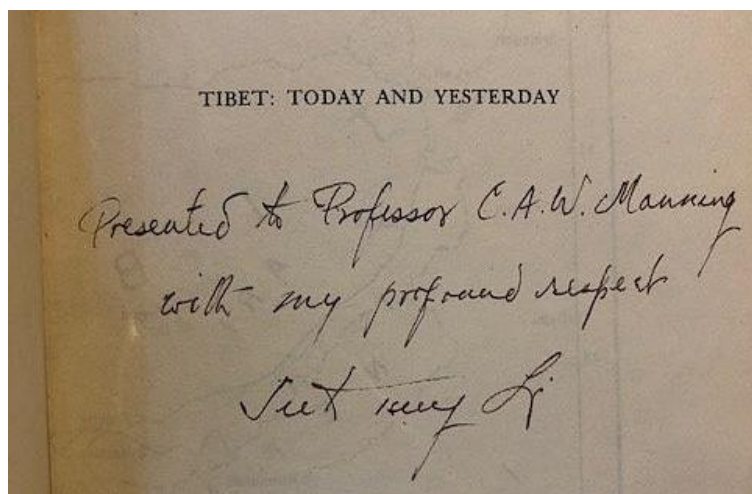 TIBET: TODAY AND YESTERDAY
Presented to Professor C.A.W. Manning
with my profound respect
Tieh-tseng Li